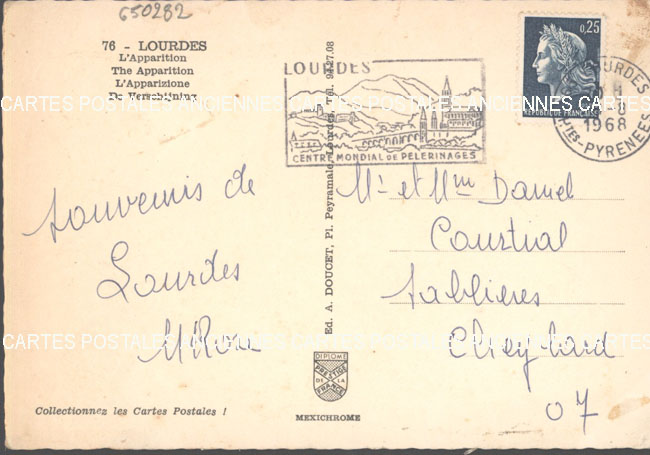 650282
76 - LOURDES
L'Apparition
The Apparition
L'Apparizione
De Verschijning
LOURDES
CENTRE MONDIAL DE PELERINAGES
0,25
REPUBLIQUE FRANÇAISE
LOURDES
1968
HTES-PYRENEES
CARTES POSTALES ANCIENNES CARTES POSTALES ANCIENNES CARTES
souvenirs de
Lourdes
M Rose
Mr et Mme Daniel
Courtial
Sablières
Cheylard
07
CARTES POSTALES ANCIENNES CARTES POSTALES ANCIENNES CARTES
Ed. A. DOUCET, Pl. Peyramale, Lourdes, Tél. 94.27.08
DIPLOME
PRESTIGE
DE LA
FRANCE
Collectionnez les Cartes Postales !
MEXICHROME